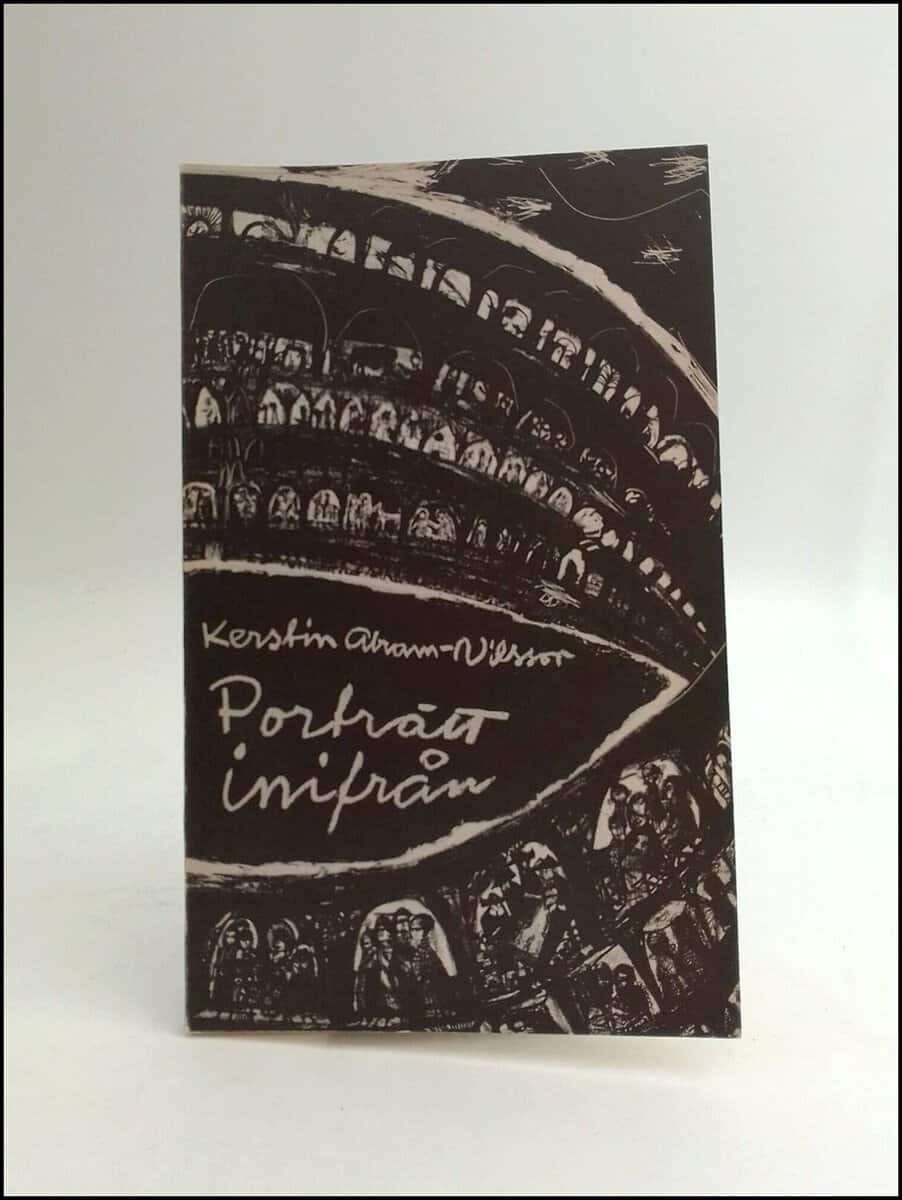 Kerstin Abram-Nilsson
Porträtt
inifrån